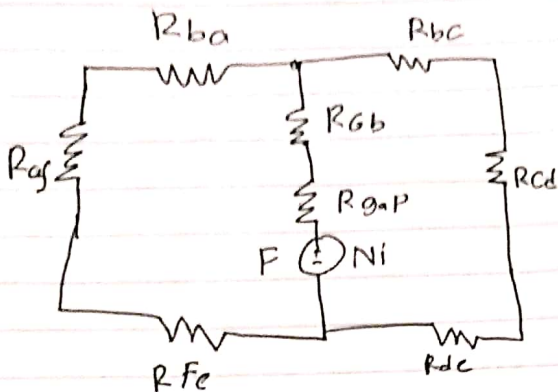 Rba
Rbc
RGb
Raf
Rcd
Rgap
F
Ni
RFe
Rdc